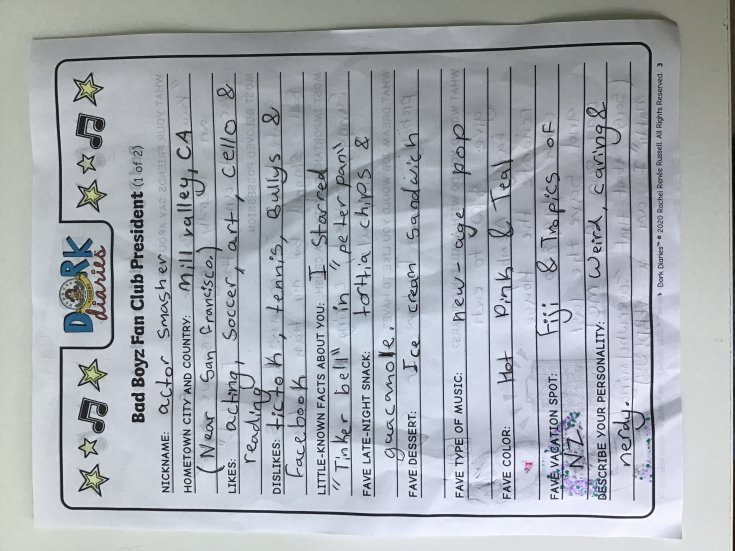 DORK
diaries
Bad Boyz Fan Club President (1 of 2)
NICKNAME: actor smasher
HOMETOWN CITY AND COUNTRY: mill valley, CA
(Near San Francisco.)
LIKES: acting, Soccer, art, cello &
reading
DISLIKES: tictok, tennis, Bullys &
Facebook
LITTLE-KNOWN FACTS ABOUT YOU: I starred
"Tinker bell" in "peter pan"
FAVE LATE-NIGHT SNACK: tortial chips &
guacamole.
FAVE DESSERT: Ice cream Sandwich
FAVE TYPE OF MUSIC: new-age pop
FAVE COLOR: Hot Pink & Teal
FAVE VACATION SPOT: Fiji & Trapics of
NZ
DESCRIBE YOUR PERSONALITY: Weird, caring &
nerdy.
Dork Diaries™ © 2020 Rachel Renée Russell. All Rights Reserved. 3